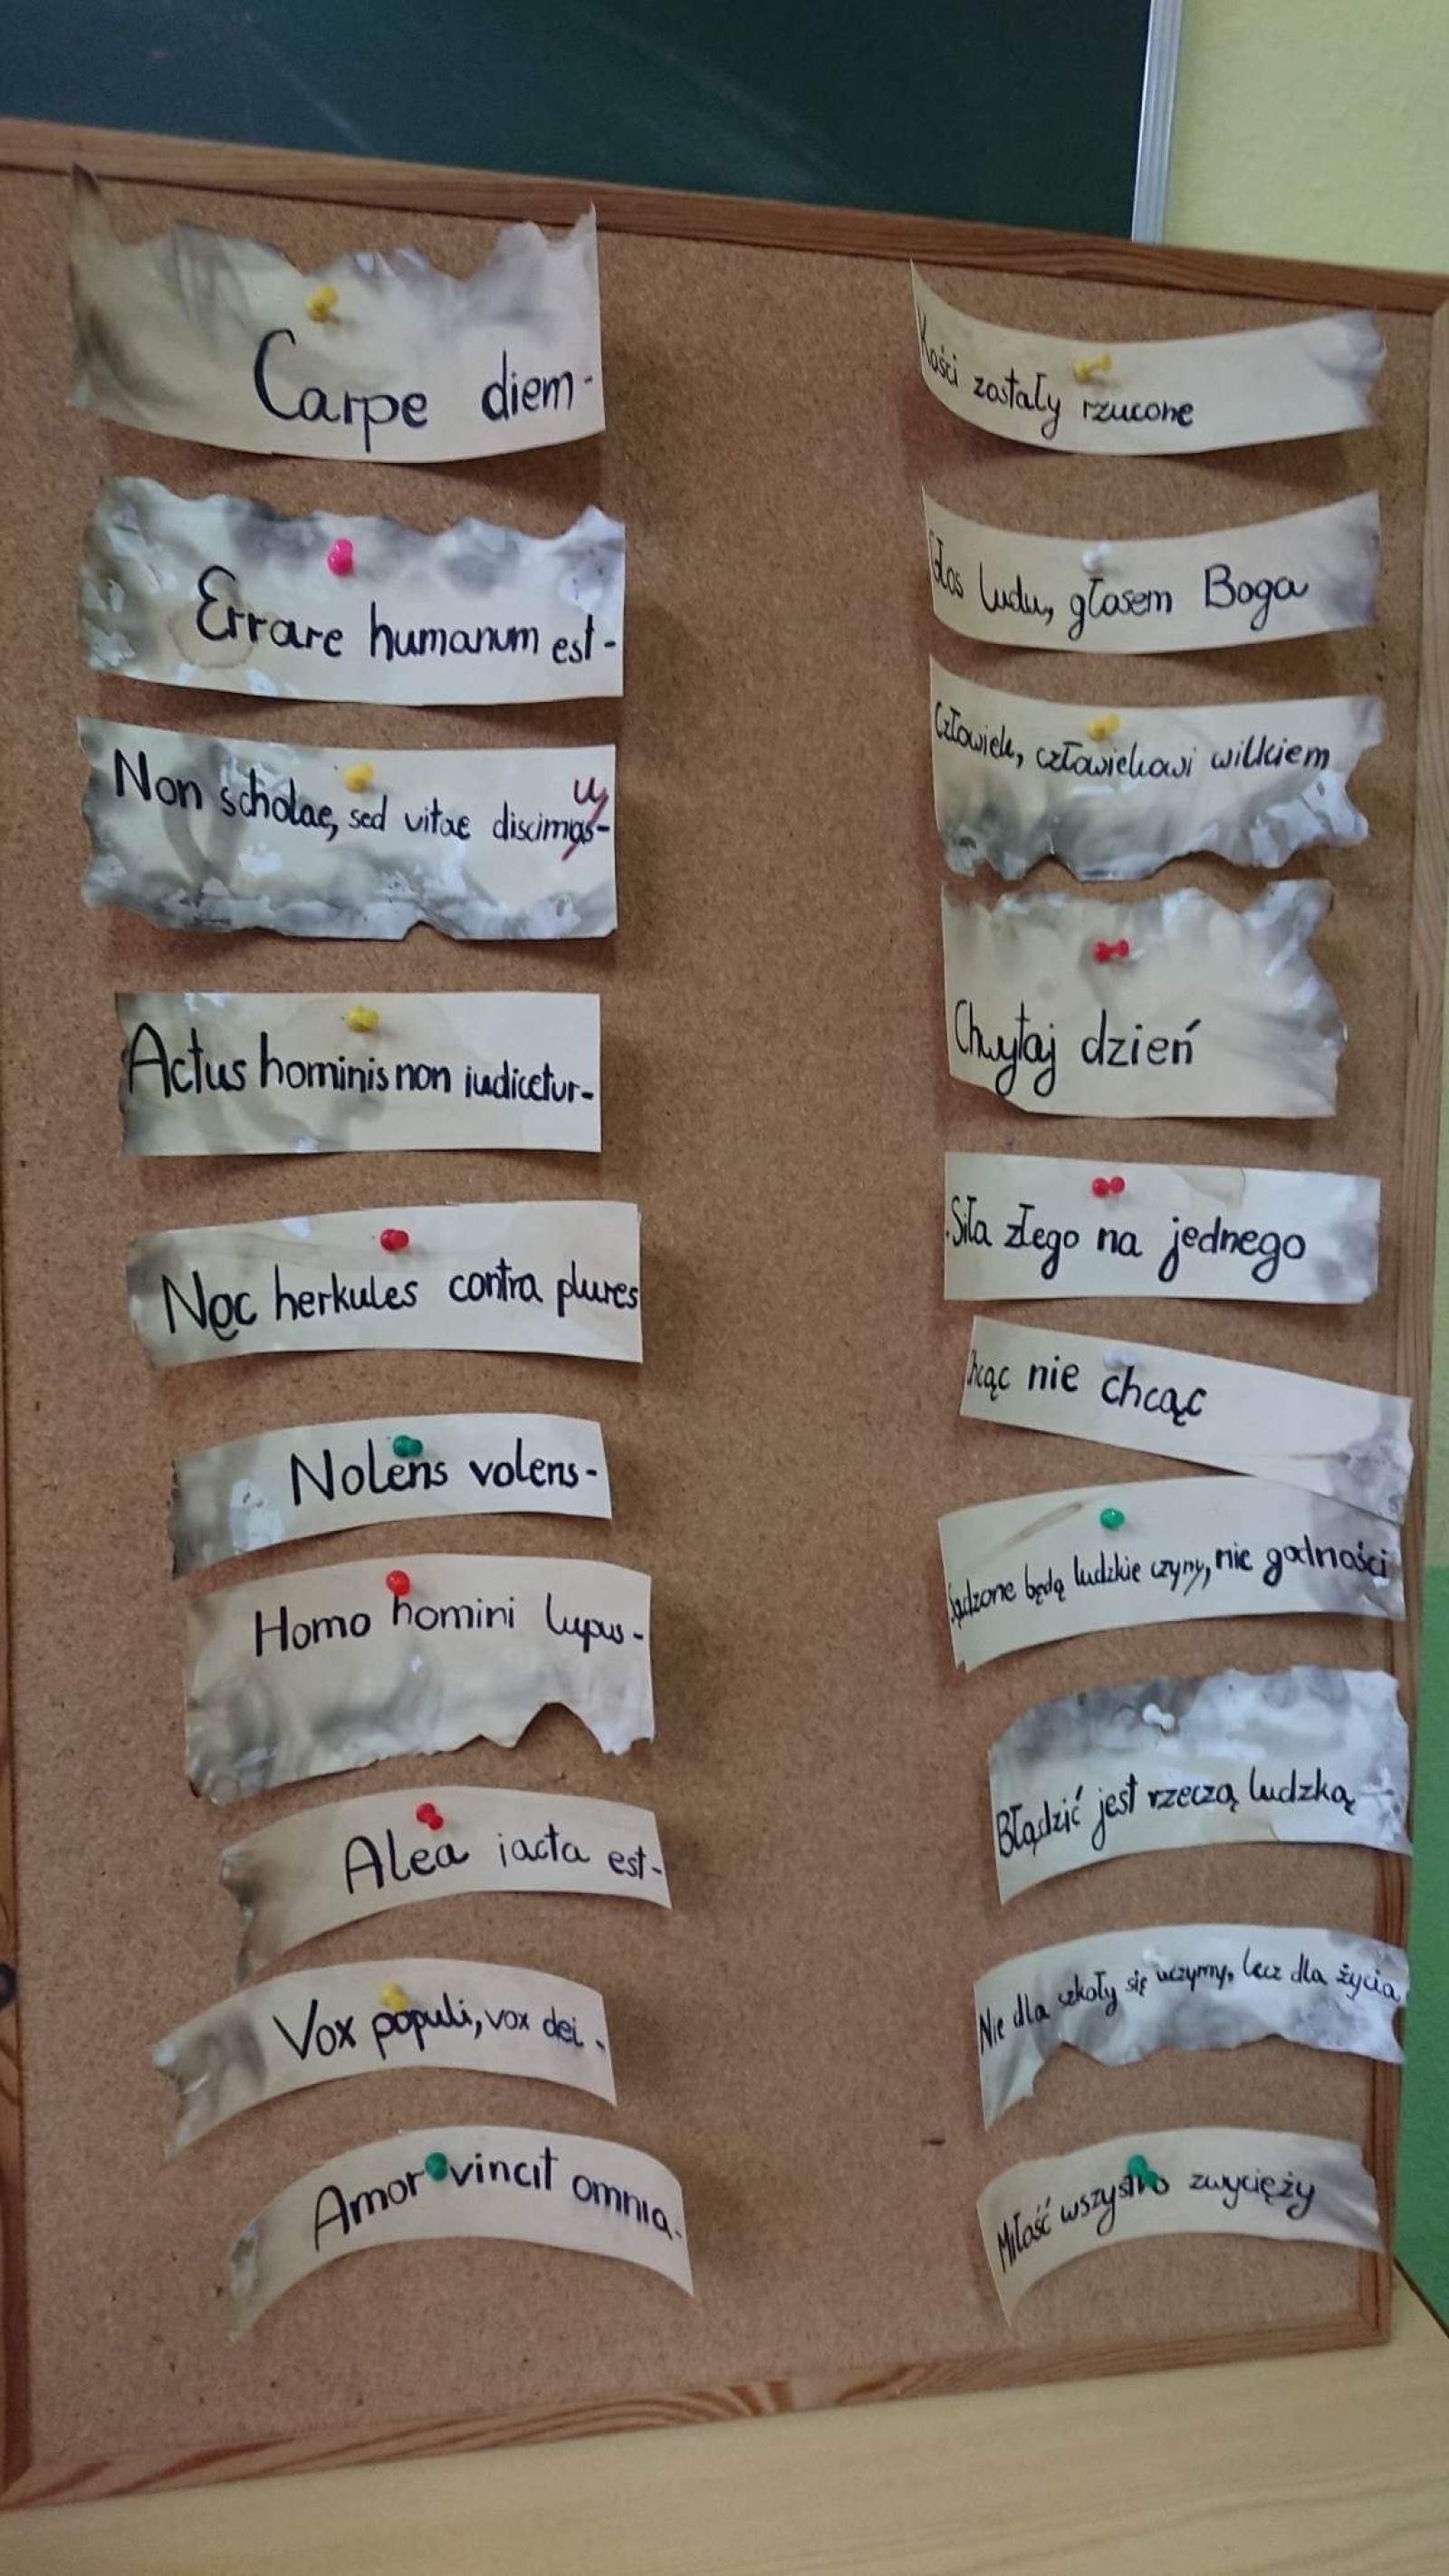 Carpe diem-
Errare humanum est-
Non scholae, sed vitae discimus-
Actus hominis non iudicetur-
Nec herkules contra plures
Nolens volens-
Homo homini lupus-
Alea iacta est-
Vox populi, vox dei -
Amor vincit omnia-
Kości zostały rzucone
Głos ludu, głosem Boga
Człowiek, człowiekowi wilkiem
Chwytaj dzień
Siła złego na jednego
Chcąc nie chcąc
Sądzone będą ludzkie czyny, nie godności
Błądzić jest rzeczą ludzką
Nie dla szkoły się uczymy, lecz dla życia
Miłość wszystko zwycięży